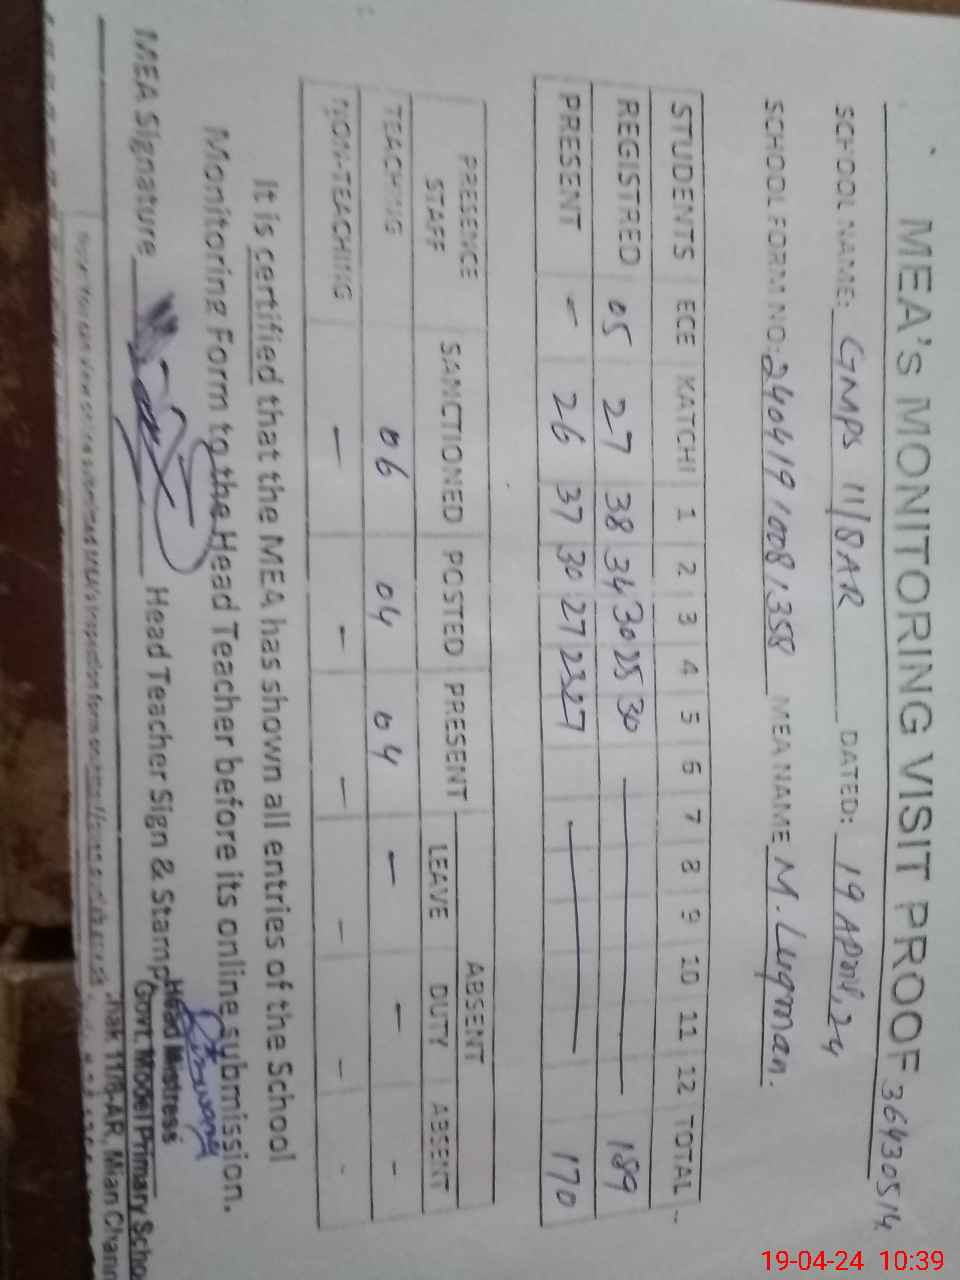 MEA'S MONITORING VISIT PROOF 36430514
SCHOOL NAME: GMPS 11/8AR DATED: 19 April, 24
SCHOOL FORM NO: 24041910081358 MEA NAME M. Luqman.
STUDENTS ECE KATCHI 1 2 3 4 5 6 7 8 9 10 11 12 TOTAL
REGISTRED 05 27 38 34 30 25 30 — 189
PRESENT - 26 37 30 27 23 27 — 170
PRESENCE STAFF SANCTIONED POSTED PRESENT ABSENT
LEAVE DUTY ABSENT
TEACHING 06 04 04 - - -
NON-TEACHING - - - - - -
It is certified that the MEA has shown all entries of the School
Monitoring Form to the Head Teacher before its online submission.
MEA Signature Head Teacher Sign & Stamp
Head Mistress
Govt. Model Primary Schoo
11/8-AR, Mian Chann
You can view online submitted MEA's inspection form on
19-04-24 10:39